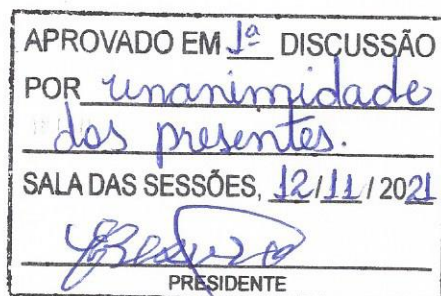 APROVADO EM 1ª DISCUSSÃO
POR unanimidade
dos presentes.
SALA DAS SESSÕES, 12/11/2021
PRESIDENTE